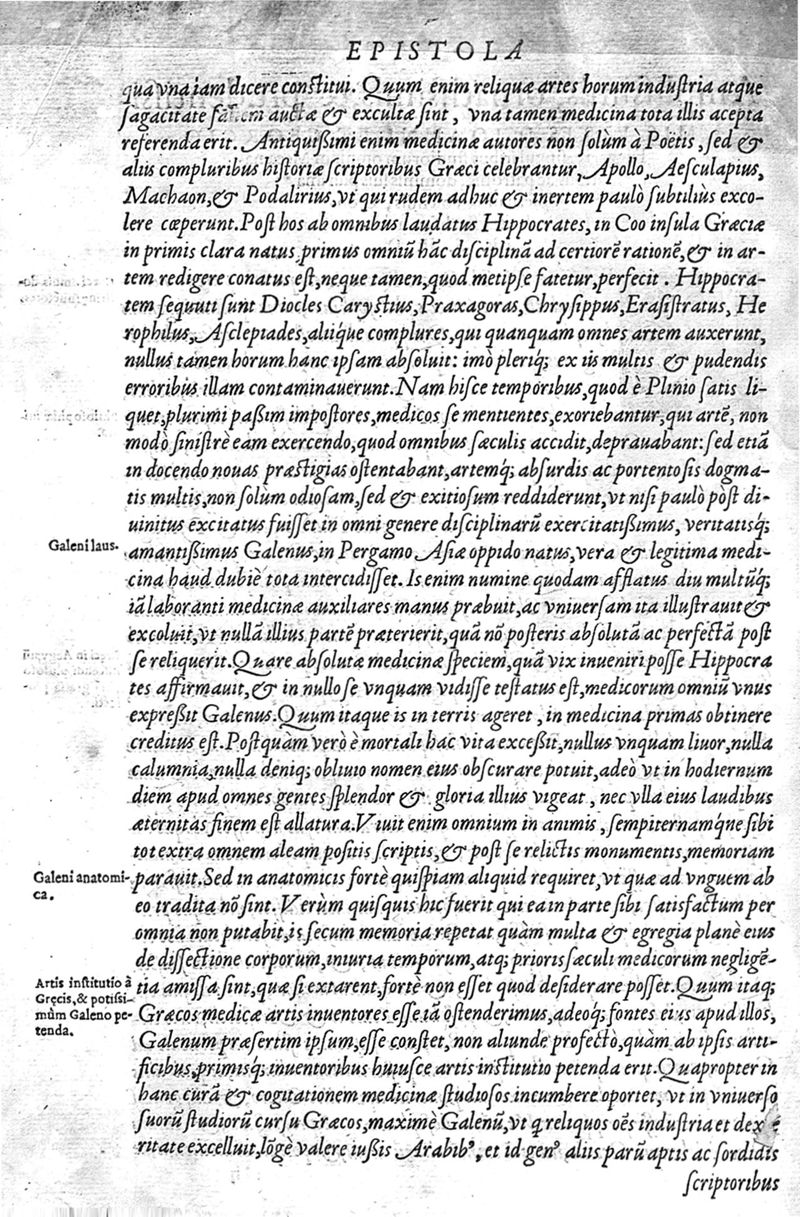 EPISTOLA
qua vna iam dicere constitui. Quum enim reliquæ artes horum industria atque
sagacitate auctæ & excultæ sint, vna tamen medicina tota illis acepta
referenda erit. Antiquißimi enim medicinæ autores non solùm à Poëtis, sed &
aliis compluribus historiæ scriptoribus Græci celebrantur, Apollo, Aesculapius,
Machaon, & Podalirius, vt qui rudem adhuc & inertem paulò subtiliùs exco-
lere cœperunt. Post hos ab omnibus laudatus Hippocrates, in Coo insula Græciæ
in primis clara natus primus omniũ hãc disciplinã ad certiorẽ rationẽ, & in ar-
tem redigere conatus est, neque tamen, quod metipse fatetur, perfecit. Hippocra-
tem sequuti sunt Diocles Carystius, Praxagoras, Chrysippus, Erasistratus, He
rophilus, Asclepiades, aliíque complures, qui quanquam omnes artem auxerunt,
nullus tamen horum hanc ipsam absoluit: imò pleriq; ex iis multis & pudendis
erroribus illam contaminauerunt. Nam hisce temporibus, quod è Plinio satis li-
quet, plurimi paßim impostores, medicos se mentientes, exoriebantur, qui artẽ, non
modò sinistrè eam exercendo, quod omnibus sæculis accidit, deprauabant: sed etiã
in docendo nouas præstigias ostentabant, artemq; absurdis ac portentosis dogma-
tis multis, non solùm odiosam, sed & exitiosum reddiderunt, vt nisi paulò pòst di-
uinitus excitatus fuisset in omni genere disciplinarũ exercitatißimus, veritatisq;
Galeni laus. amantißimus Galenus, in Pergamo Asiæ oppido natus, vera & legitima medi-
cina haud dubiè tota intercidisset. Is enim numine quodam afflatus diu multũq;
iã laboranti medicinæ auxiliares manus præbuit, ac vniuersam ita illustrauit &
excoluit, vt nullã illius partẽ præterierit, quã nõ posteris absolutã ac perfectã post
se reliquerit. Quare absolutæ medicinæ speciem, quã vix inueniri posse Hippocra
tes affirmauit, & in nullo se vnquam vidisse testatus est, medicorum omniũ vnus
expreßit Galenus. Quum itaque is in terris ageret, in medicina primas obtinere
creditus est. Postquàm verò è mortali hac vita exceßit, nullus vnquam liuor, nulla
calumnia, nulla deniq; obliuio nomen eius obscurare potuit, adeò vt in hodiernum
diem apud omnes gentes splendor & gloria illius vigeat, nec vlla eius laudibus
æternitas finem est allatura. Viuit enim omnium in animis, sempiternamq́ue sibi
tot extra omnem aleam positis scriptis, & post se relictis monumentis, memoriam
Galeni anatomi- parauit. Sed in anatomicis fortè quispiam aliquid requiret, vt quæ ad vnguem ab
ca. eo tradita nõ sint. Verùm quisquis hic fuerit qui ea in parte sibi satisfactum per
omnia non putabit, is secum memoria repetat quàm multa & egregia planè eius
de dissectione corporum, iniuria temporum, atq; prioris sæculi medicorum negligẽ-
Artis institutio à tia amissa sint, quæ si extarent, fortè non esset quod desiderare posset. Quum itaq;
Gręcis, & potißi- Græcos medicæ artis inuentores esse iã ostenderimus, adeoq; fontes eius apud illos,
mùm Galeno pe- Galenum præsertim ipsum, esse constet, non aliunde profectò, quàm ab ipsis arti-
tenda. ficibus, primisq; inuentoribus huiusce artis institutio petenda erit. Quapropter in
hanc curã & cogitationem medicinæ studiosos incumbere oportet, vt in vniuerso
suorũ studiorũ cursu Græcos, maximè Galenũ, vt q reliquos oẽs industria et dexte
ritate excelluit, lõgè valere iußis Arabibꝰ, et id genꝰ aliis parũ aptis ac sordidis
scriptoribus